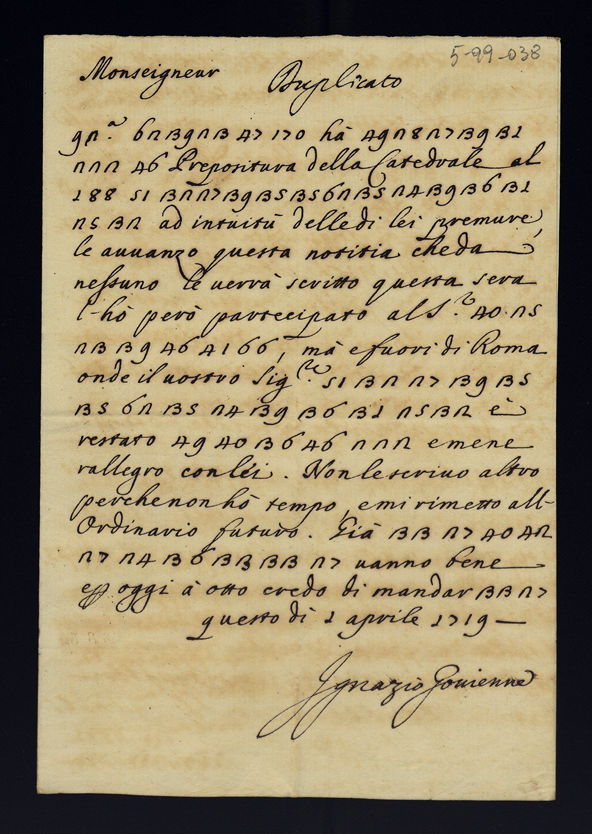 5-99-038
Monseigneur Duplicato
6n B9nB 47 170 hà 49n8n7B9B1
nnn 46 Prepositura della Catedrale al
188 51 Bnn7B9B5B56nB5n4B9B6B1
n5 Bn ad intuitù delle di lei premure,
le auuanzo questa notitia che da
nessuno le uerrà scritto questa sera
l'hò però partecipato al S.r 40 n5
nB B9 46 41 66, mà e fuori di Roma
onde il uostro Sig.re 51 B n n7 B9 B5
B5 6n B5 n4 B9 B6 B1 n5 Bn è
restato 49 40 B6 46 nnn e me ne
rallegro con léi. Non le scriuo altro
perche non hò tempo, e mi rimetto all'
Ordinario futuro. Già BB n7 40 4n
n7 n4 B6 BB BB n7 uanno bene
oggi à otto credo di mandar BB n7
questo dì 1 aprile 1719
Ignazio